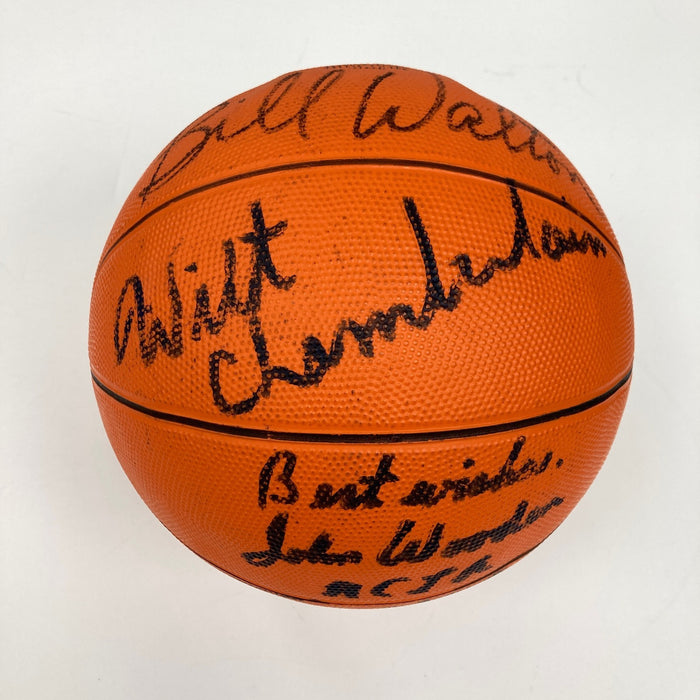 Bill Walton
Wilt
Chamberlain
Best wishes,
John Wooden
UCLA